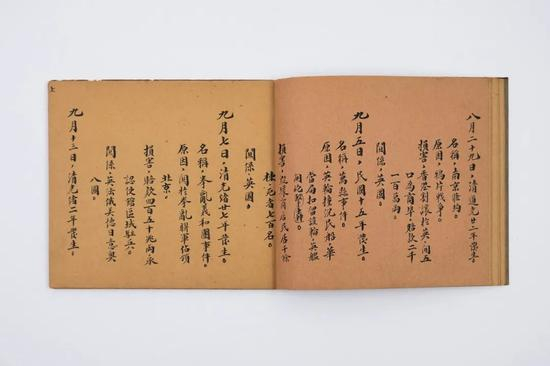 八月二十九日，清道光廿二年發生
名稱，南京條約
原因，鴉片戰爭。
損害，香港割讓於英，開五
口為商埠，賠款二千
一百萬兩。
關係，英國。
九月五日，民國十五年發生。
名稱，萬縣事件。
原因，英輪撞沉民船，華
當局扣留該輪，英艦
開砲
損害，毀壞商店民居千餘
棟，死者七百名。
關係，英國。
九月七日，清光緒廿七年發生。
名稱，拳亂義和團事件。
原因，因於拳亂聯軍佔領
北京。
損害，賠款四百五十兆兩，承
認使館區域駐兵。
關係，英法俄美德日意奧
八國。
九月十三日，清光緒二年發生。